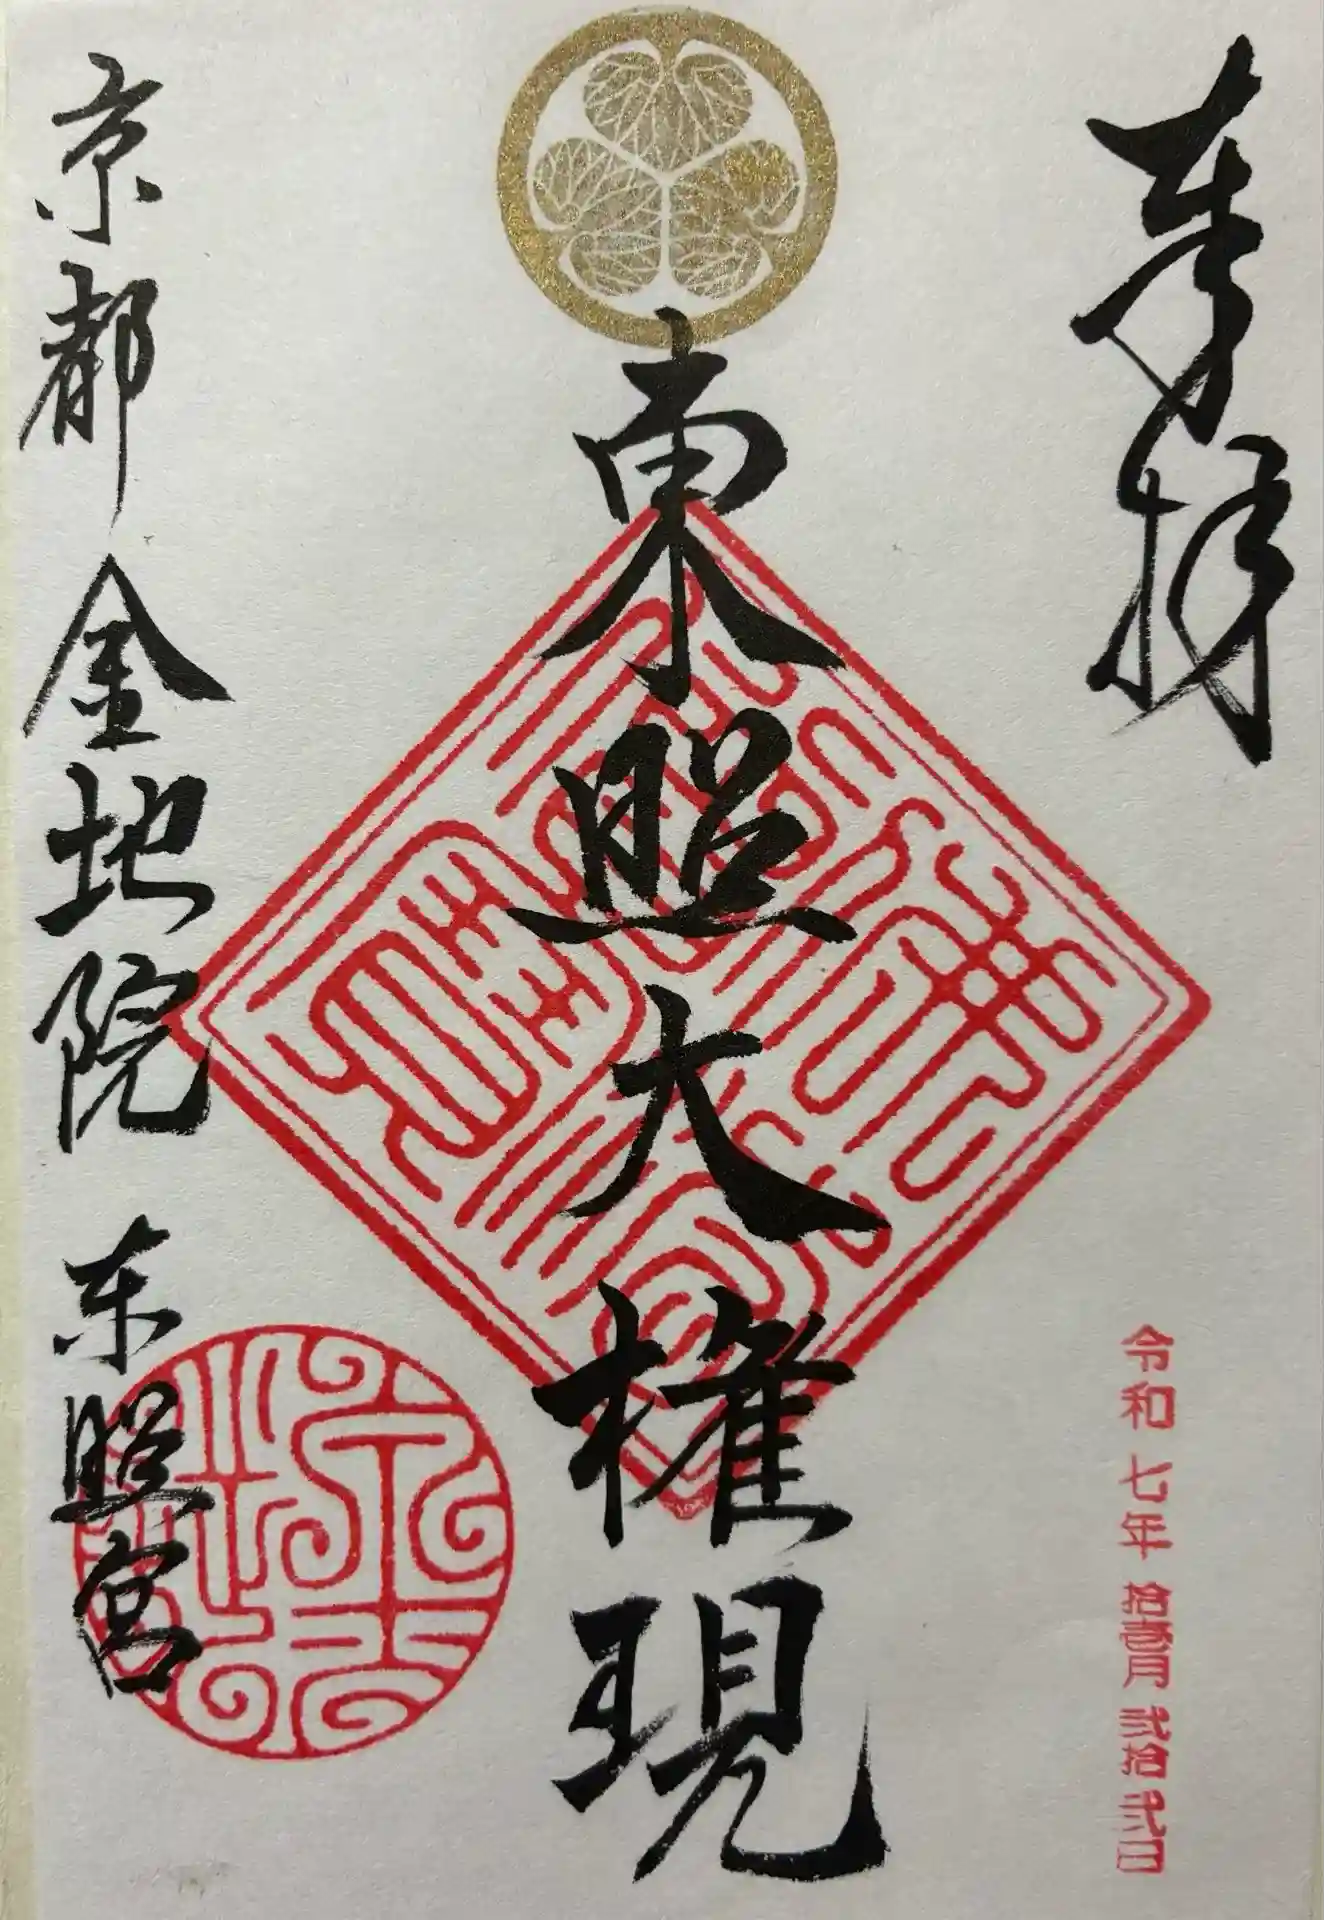 奉拝
令和七年拾壱月弐拾弐日
東照大権現
京都金地院东照宮